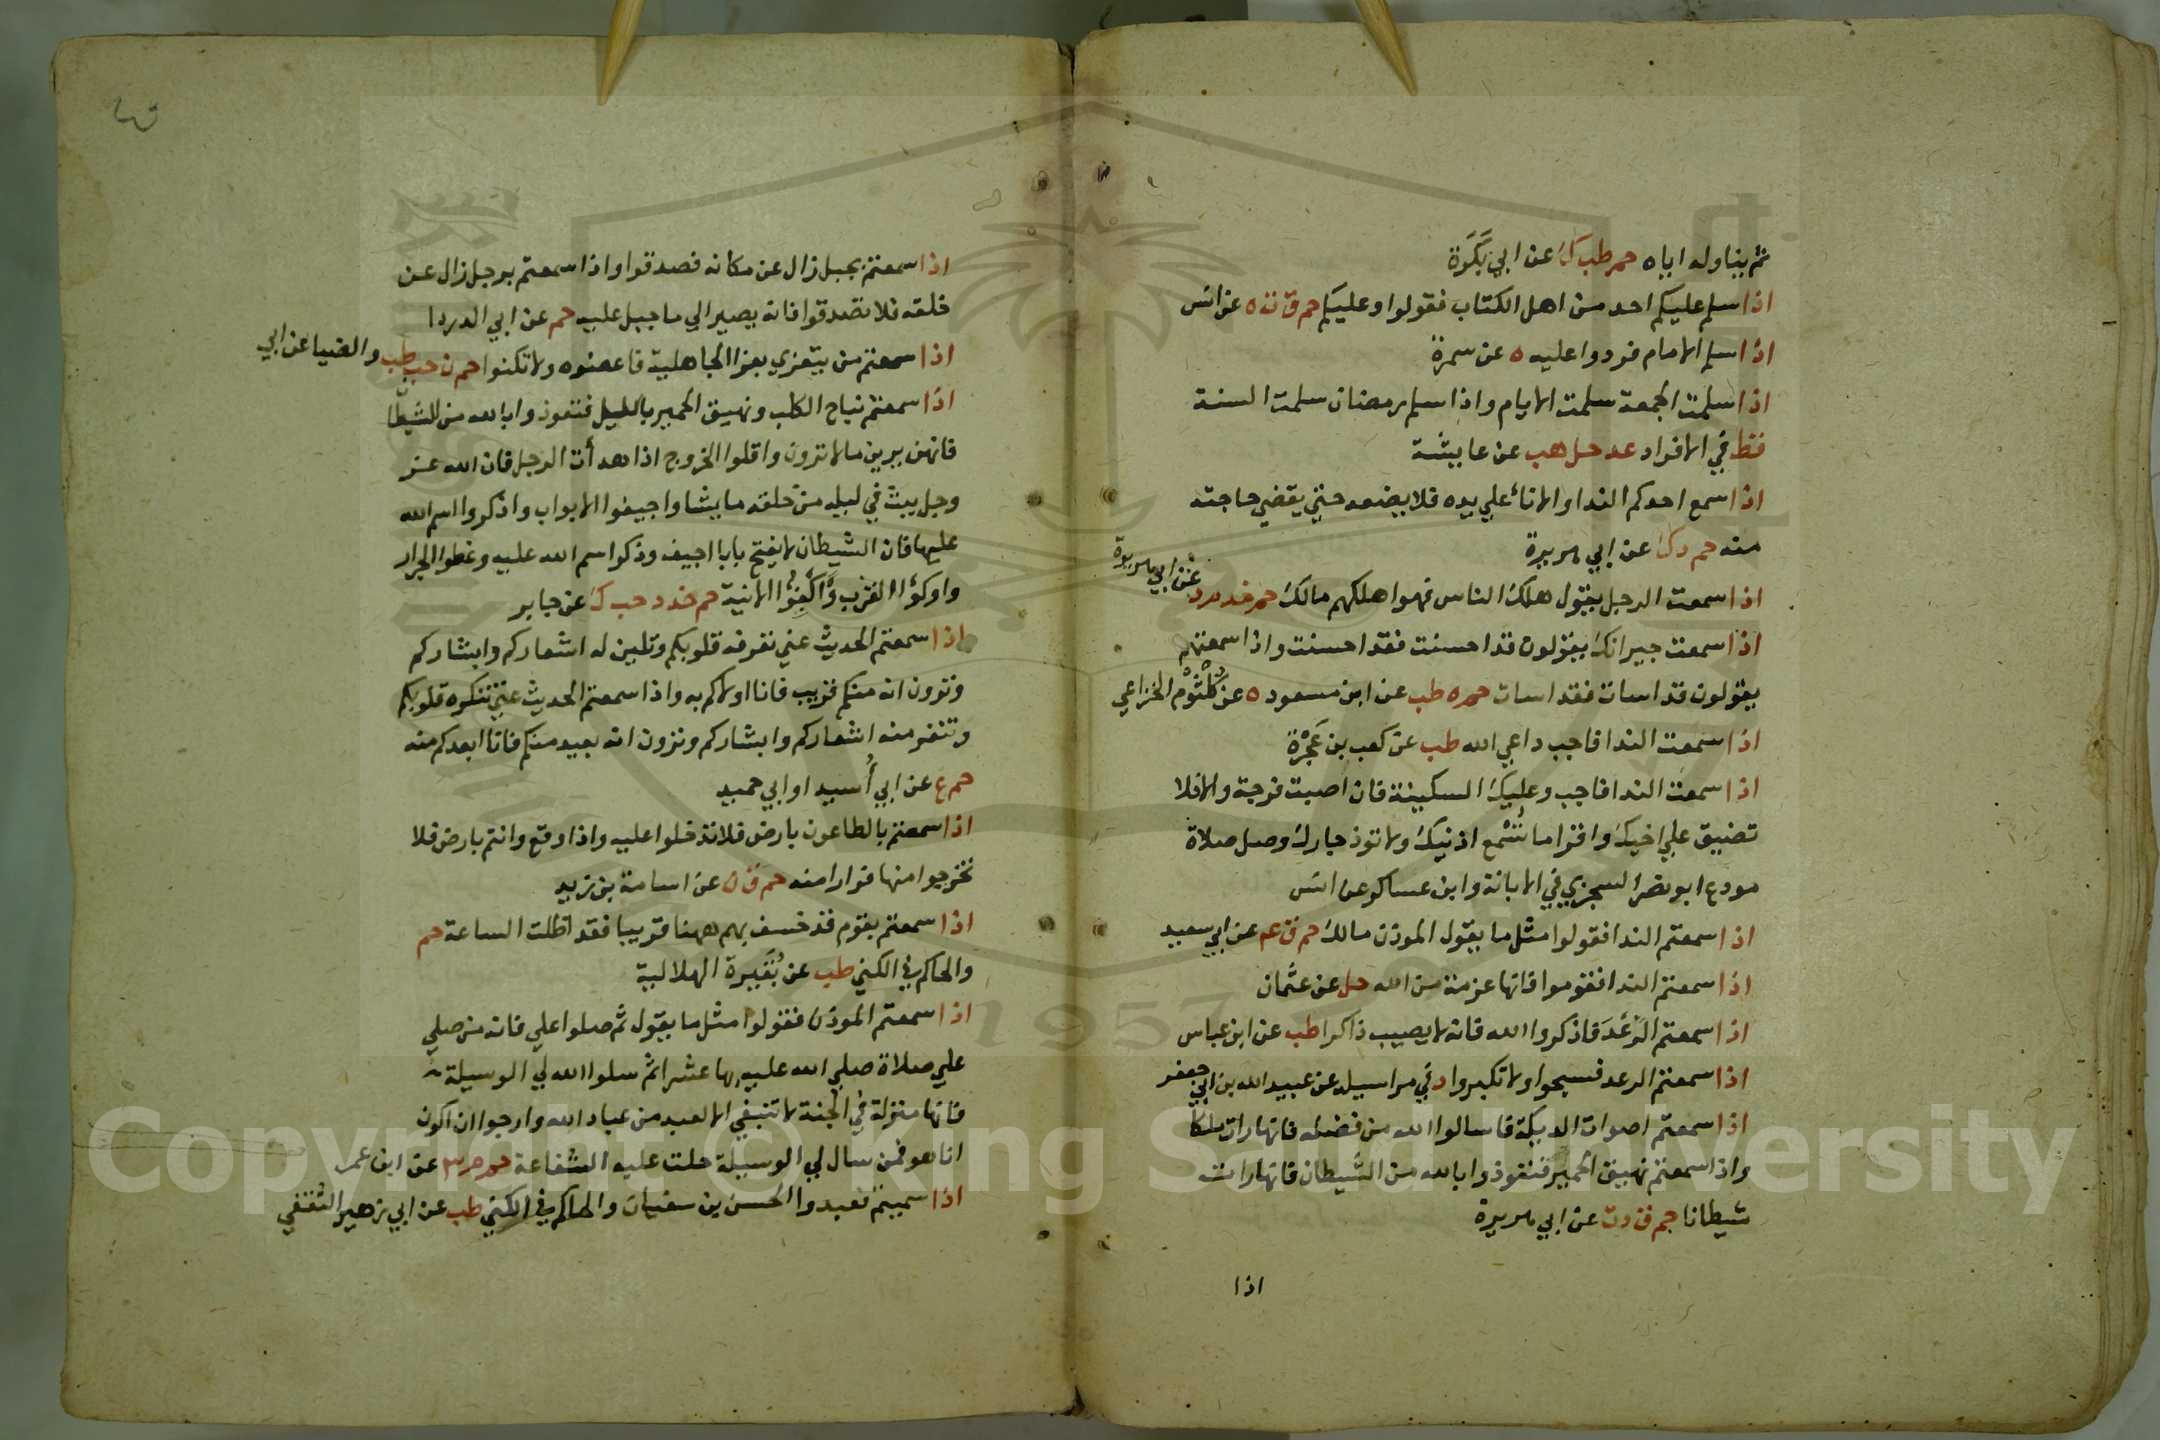 ثم يناوله اياه حم طب ك عن ابي بَكرَة
اذا سلم عليكم احد من اهل الكتاب فقولوا وعليكم حم ق ت ه عن انس
اذا سلم الامام فردوا عليه ه عن سمرة
اذا سلمت الجمعة سلمت الايام واذا سلم رمضان سلمت السنة
قط في الافراد عد حل هب عن عايشة
اذا سمع احدكم الندا والاناء علي يده فلا يضعه حتي يقضي حاجته
منه حم د ك عن ابي هريرة
اذا سمعت الرجل يقول هلك الناس فهوا هلكهم مالك حم خد م د عن ابي هريرة
اذا سمعت جيرانك يقولون قد احسنت فقد احسنت واذا سمعتهم
يقولون قد اسات فقد اسات حم ه طب عن ابن مسعود ه عن كُلْثُوم الخزاعي
اذا سمعت الندا فاجب داعي الله طب عن كعب بن عُجْرَة
اذا سمعت الندا فاجب وعليك السكينة فان اصبت فرجة والا فلا
تضيق علي اخيك واقرا ما تُسْمع اذنيك ولا توذ جارك وصل صلاة
مودع ابو نصر السجزي في الابانة وابن عساكر عن انس
اذا سمعتم الندا فقولوا مثل ما يقول الموذن مالك حم ق عم عن ابي سعيد
اذا سمعتم الندا فقوموا فانها عزمة من الله حل عن عثمان
اذا سمعتم الرَعْدَ فاذكروا الله فانه لا يصيب ذاكرا طب عن ابن عباس
اذا سمعتم الرعد فسبحوا ولا تكبروا د في مراسيله عن عبيد الله بن ابي جعفر
اذا سمعتم اصوات الديكة فاسالوا الله من فضله فانها رات ملكا
واذا سمعتم نهيق الحمير فتعوذوا بالله من الشيطان فانها رات
شيطانا حم ق د ت عن ابي هريرة
اذا
اذا سمعتم بجبل زال عن مكانه فصدقوا واذا سمعتم برجل زال عن
خلقه فلا تصدقوا فانه يصير الي ما جبل عليه حم عن ابي الدردا
اذا سمعتم من يتعزي بعزا الجاهلية فاعضوه ولا تكنوا حم ن حب طب والضيا عن ابي
اذا سمعتم نباح الكلب ونهيق الحمير بالليل فتعوذوا بالله من الشيطا
فانهن يرين ما لا ترون واقلوا الخروج اذا هدأت الرجل فان الله عز
وجل يبث في ليله من خلقه ما يشا واجيفوا الابواب واذكروا اسم الله
عليها فان الشيطان لا يفتح بابا اجيف وذكر اسم الله عليه وغطوا الجرار
واوكؤا القرب واكْفِؤُا الانية حم خد د حب ك عن جابر
اذا سمعتم الحديث عني تعرفه قلوبكم وتلين له اشعاركم وابشاركم
وترون انه منكم قريب فانا اولاكم به واذا سمعتم الحديث عني تنكره قلوبكم
وتنفر منه اشعاركم وابشاركم وترون انه بعيد منكم فانا ابعدكم منه
حم ع عن ابي أُسيد او ابي حميد
اذا سمعتم بالطاعون بارض فلا تدخلوا عليه واذا وقع وانتم بارض فلا
تخرجوا منها فرارا منه حم ق ن عن اسامة بن زيد
اذا سمعتم بقوم قد خسف بهم ههنا قريبا فقد اظلت الساعة حم
والحاكم في الكني طب عن بُقَيرة الهلالية
اذا سمعتم الموذن فقولوا مثل ما يقول ثم صلوا علي فانه من صلي
علي صلاة صلي الله عليه بها عشرا ثم سلوا الله لي الوسيلة
فانها منزلة في الجنة لا تنبغي الا لعبد من عباد الله وارجوا ان اكون
انا هو فمن سال لي الوسيلة حلت عليه الشفاعة حم م ٣ عن ابن عمر
اذا سميتم فعبدوا الحسن بن سفيان والحاكم في الكني طب عن ابي زهير الثقفي